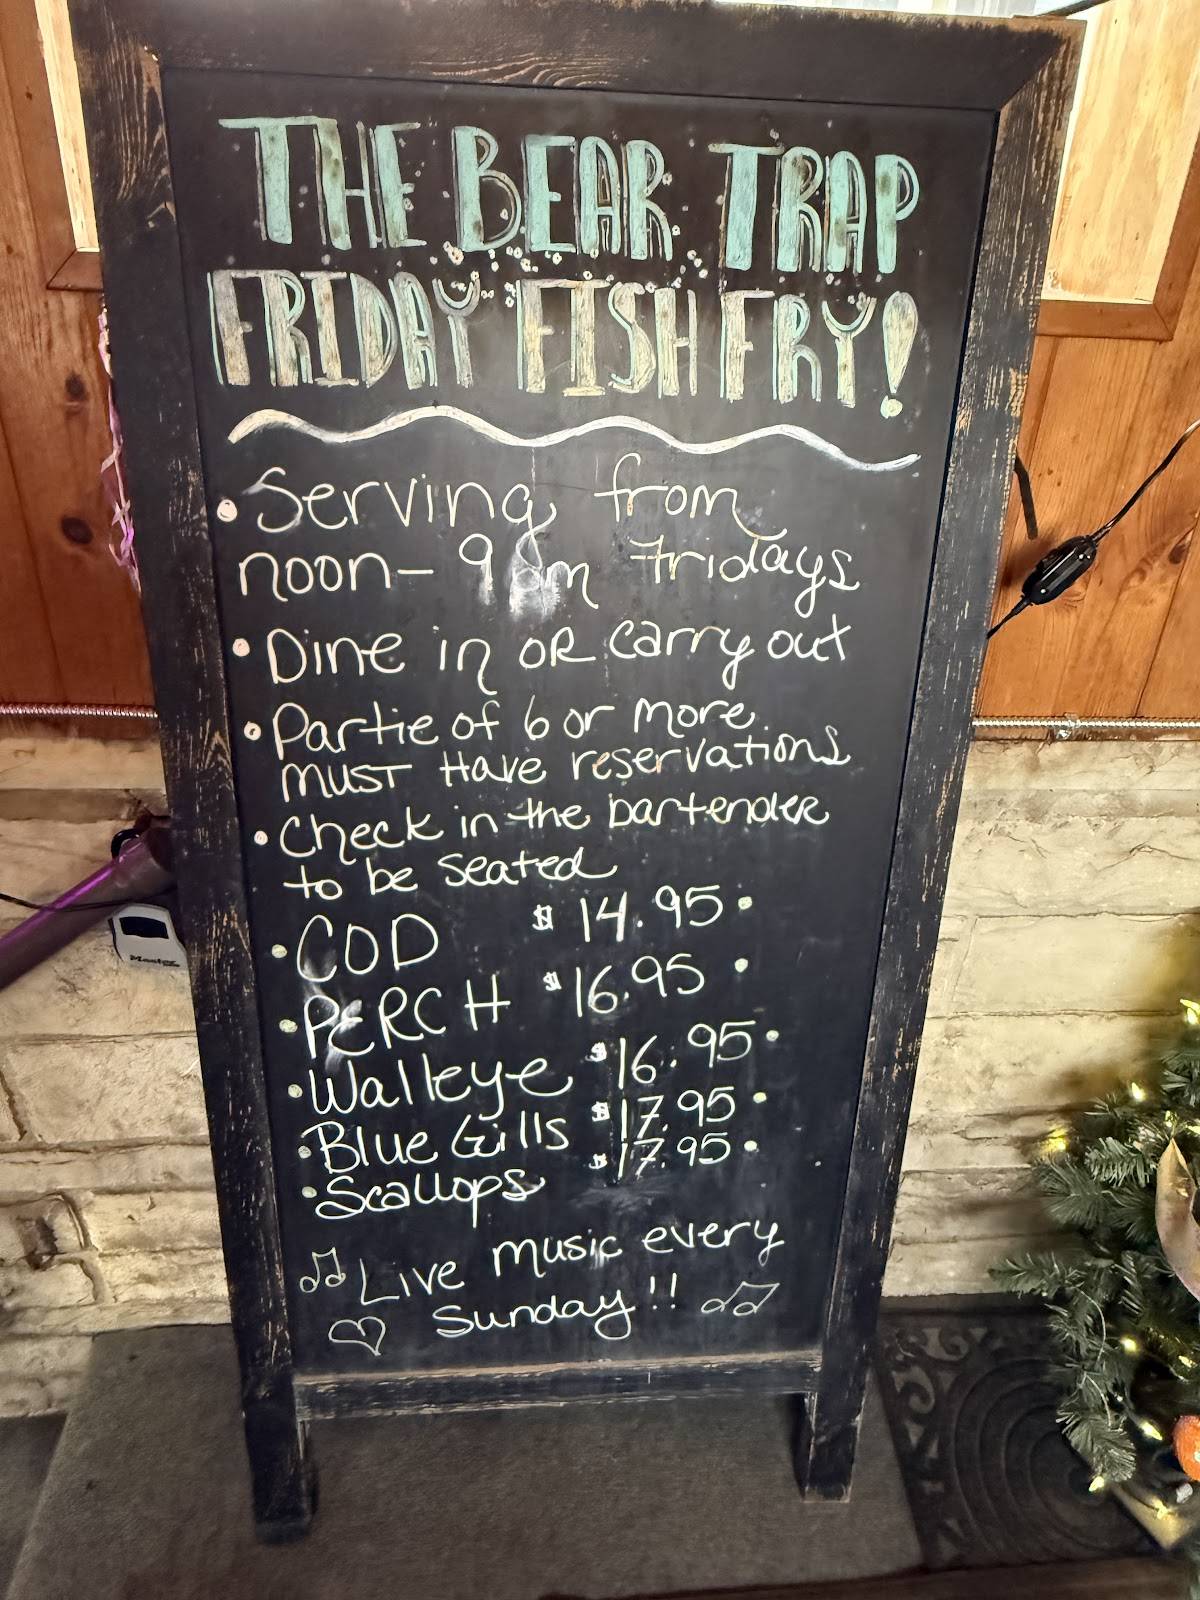 THE BEAR TRAP
FRIDAY FISH FRY!
• Serving from
noon - 9 pm Fridays
• Dine in OR carry out
• Partie of 6 or more
MUST Have reservations
• Check in the bartender
to be seated
• COD $14.95 •
• PERCH $16.95 •
• Walleye $16.95 •
• Blue Gills $17.95 •
• Scallops $17.95 •
Live music every
Sunday!!
Master